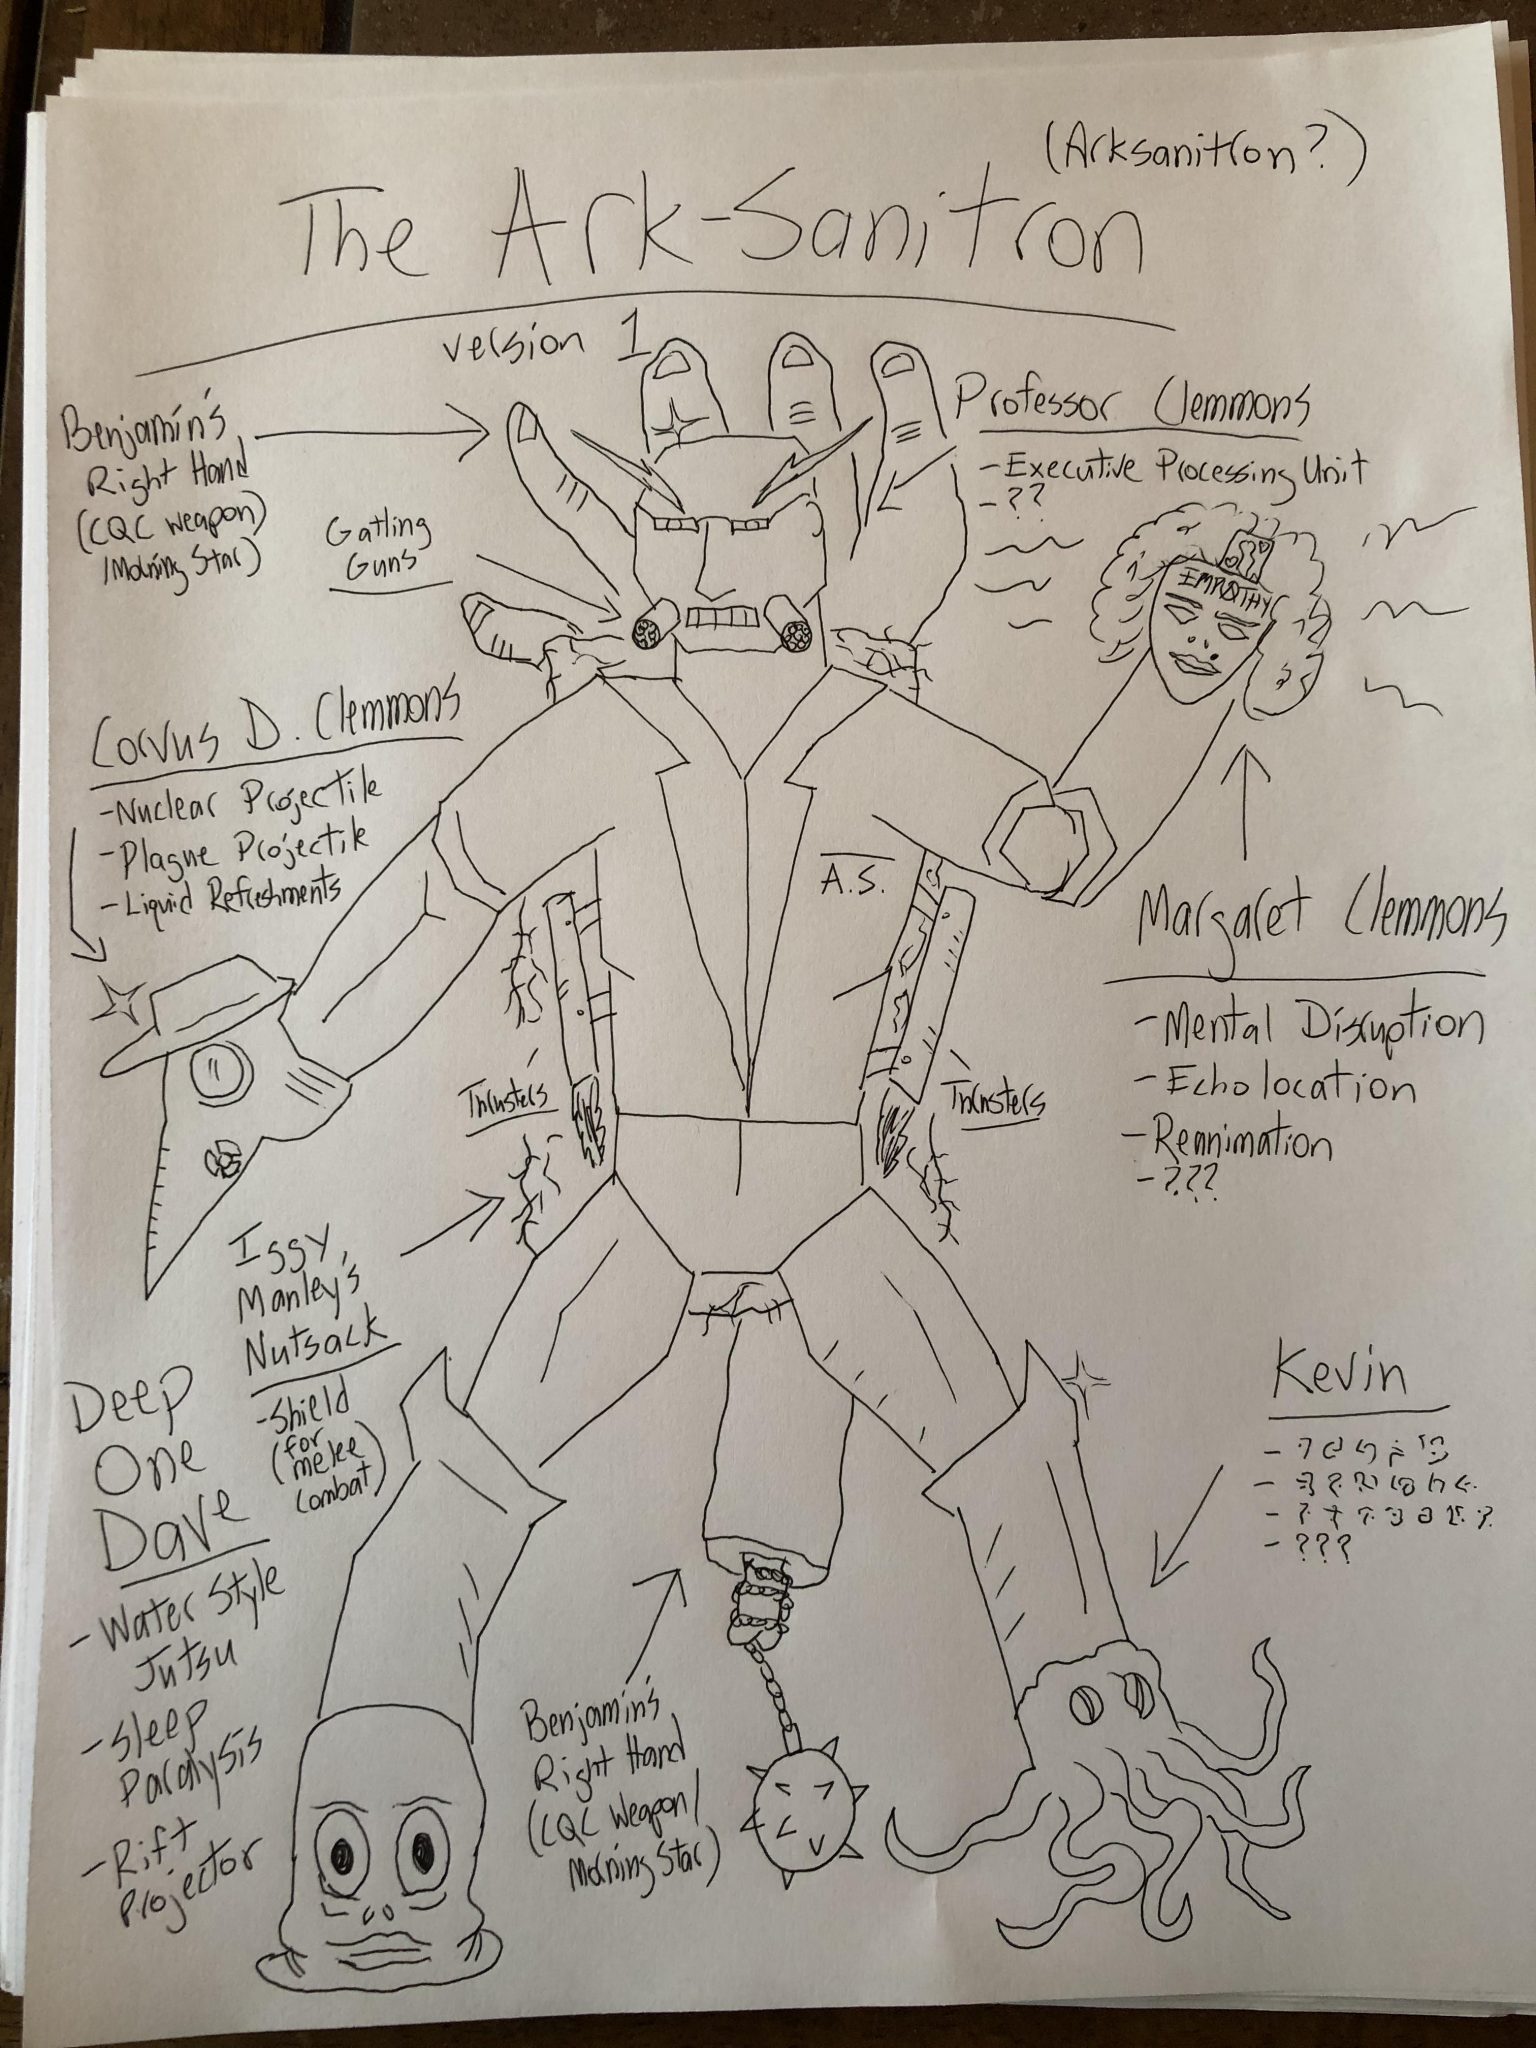 (Arksanitron?)
The Ark-Sanitron
version 1
Benjamin's
Right Hand
(CQC weapon)
/Morning Star)
Gatling
Guns
Professor Clemmons
- Executive Processing Unit
- ??
EMPATHY
Corvus D. Clemmons
- Nuclear Projectile
- Plague Projectile
- Liquid Refreshments
A.S.
Margaret Clemmons
- Mental Disruption
- Echolocation
- Reanimation
- ???
Thrusters
Thrusters
Iggy,
Manley's
Nutsack
- Shield
(for
melee
combat)
Deep
One
Dave
- Water Style
Jutsu
- Sleep
Paralysis
- Rift
Projector
Benjamin's
Right Hand
(CQC Weapon/
Morning Star)
Kevin
- ???